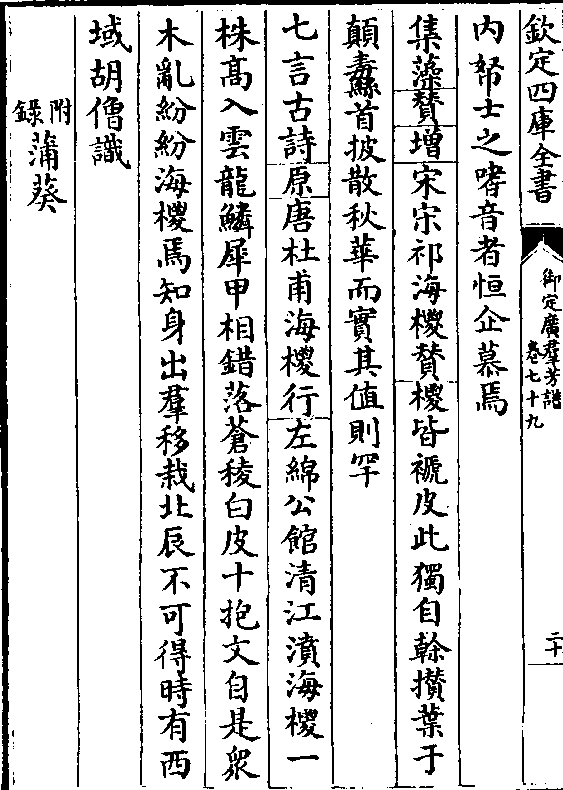 欽定四庫全書
御定廣羣芳譜
卷七十九
二十
内帑士之嗜音者恒企慕焉
集藻贊增宋宋祁海椶贊椶皆褫皮此獨自榦攅葉于
顛纛首披散秋華而實其值則罕
七言古詩原唐杜甫海椶行左綿公館清江濆海椶一
株高入雲龍鱗犀甲相錯落蒼稜白皮十抱文自是衆
木亂紛紛海椶焉知身出羣移栽北辰不可得時有西
域胡僧識
附錄蒲葵